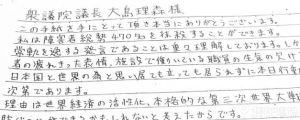 衆議院議長大島理森様
この手紙を手にとって頂き本当にありがとうございます。
私は障害者総勢470名を抹殺することができます。
常軌を逸する発言であることは重々理解しております。しか
者の疲れきった表情、施設で働いている職員の生気の欠け
日本国と世界の為と思い居ても立っても居られずに本日行動
次第であります。
理由は世界経済の活性化、本格的な第三次世界大戦